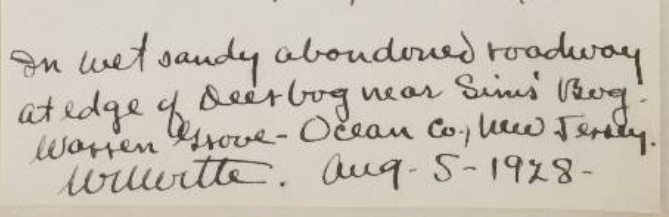 In wet sandy abondoned roadway
at edge of Deerbog near Sims' Bog.
Warren Grove - Ocean Co., New Jersey.
Aug - 5 - 1928 -